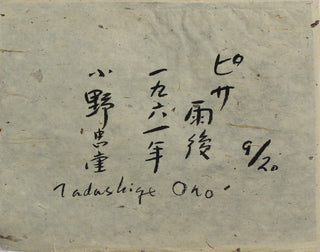 ピサ
雨後
一九六一年
小野忠重
9/20
Tadashige Ono